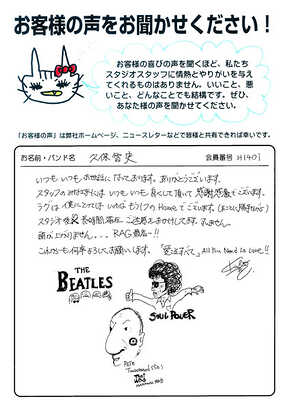 お客様の声をお聞かせください！
お客様の喜びの声を聞くほど、私たち
スタジオスタッフに情熱とやりがいを与え
てくれるものはありません。いいこと、悪
いこと、どんなことでも結構です。ぜひ、
あなた様の声を聞かせてください。
「お客様の声」は弊社ホームページ、ニュースレターなどで皆様と共有できれば幸いです。
お名前・バンド名 久保 史 会員番号 H1401
いつも いつも お世話になっております。ありがとうございます。
スタッフのみなさまには いつも いつも 良くして頂いて 感謝感激でございます。
ラグは 僕にとっては いわば もう1つの Homeでございます
スタジオ後 長時間 ご迷惑おかけしてます。すいません。
頭が上がりません… RAG最高ー!!
これからも何卒よろしくお願いします。「愛こそすべて」All You Need is Love!!
THE
BEATLES
SOUL POWER
PETE
Townshend